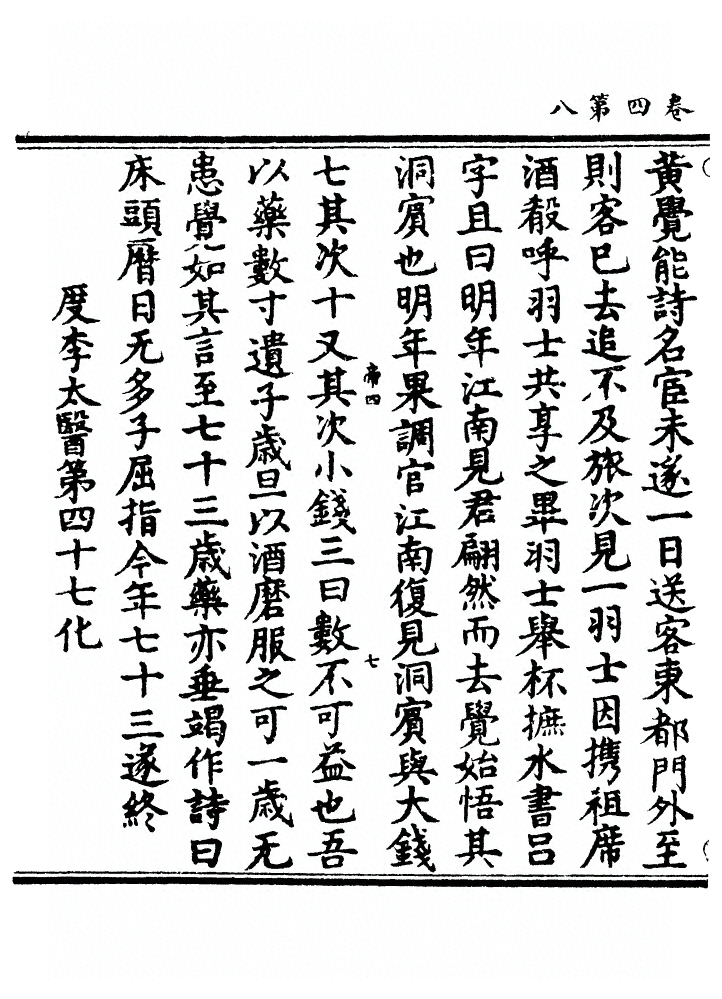 卷四第八
黃覺能詩名宦未遂一日送客東都門外至
則客巳去追不及旅次見一羽士因携祖席
酒殽呼羽士共享之畢羽士舉杯摭水書呂
字且曰明年江南見君翩然而去覺始悟其
洞賓也明年果調官江南復見洞賓與大錢
七其次十又其次小錢三曰數不可益也吾
帝四
七
以藥數寸遺子歲旦以酒磨服之可一歲无
患覺如其言至七十三歲藥亦垂竭作詩曰
床頭曆日无多子屈指今年七十三遂終
度李太醫第四十七化